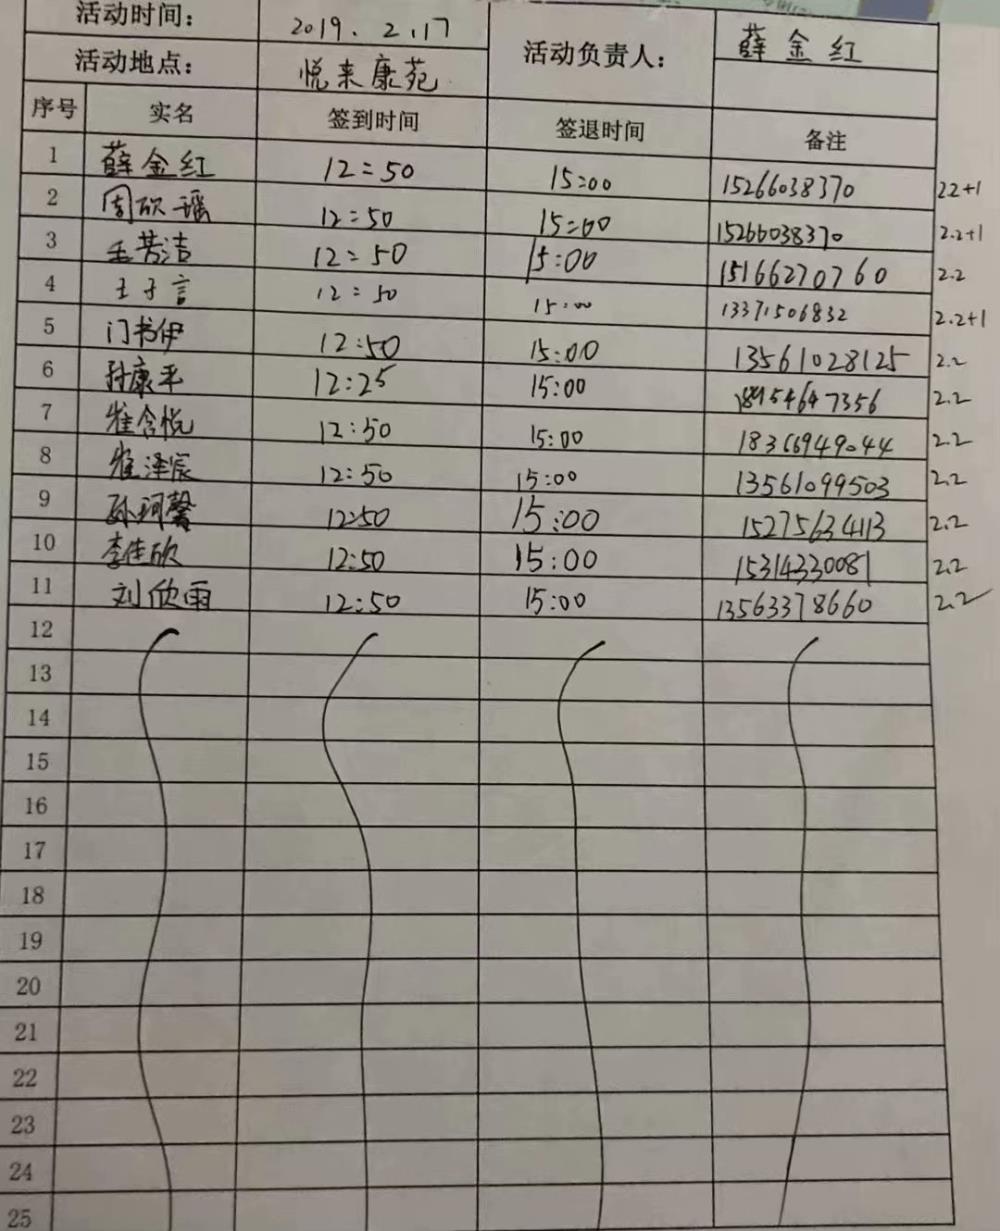 活动时间： 2019. 2.17 活动负责人： 薛金红
活动地点： 悦来康苑
序号 实名 签到时间 签退时间 备注
1 薛金红 12:50 15:00 15266038370 2.2+1
2 周欣瑶 12:50 15:00 15266038370 2.2+1
3 12:50 15:00 15166270760 2.2
4 王子言 12:50 15:00 13371506832 2.2+1
5 门书伊 12:50 15:00 13561028125 2.2
6 孙康平 12:25 15:00 18954647356 2.2
7 12:50 15:00 18366949044 2.2
8 12:50 15:00 13561099503 2.2
9 孙珂馨 12:50 15:00 15275634113 2.2
10 李佳欣 12:50 15:00 15314330081 2.2
11 刘欣雨 12:50 15:00 13563378660 2.2
12
13
14
15
16
17
18
19
20
21
22
23
24
25